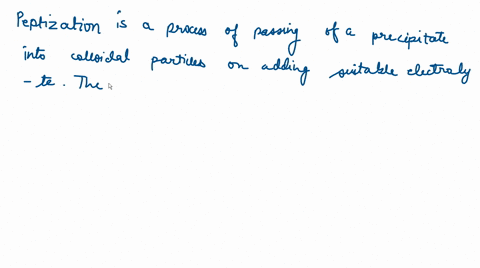 Peptization is a process of passing of a precipitate
into colloidal particles on adding suitable electroly
- te. The